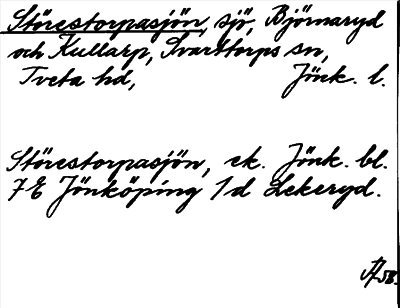 Störestorpasjön, sjö, Björnaryd
och Kullarp, Svarttorps sn,
Tveta hd, Jönk. l.
Störestorpasjön, ek. Jönk. bl.
7E Jönköping 1d Lekeryd.